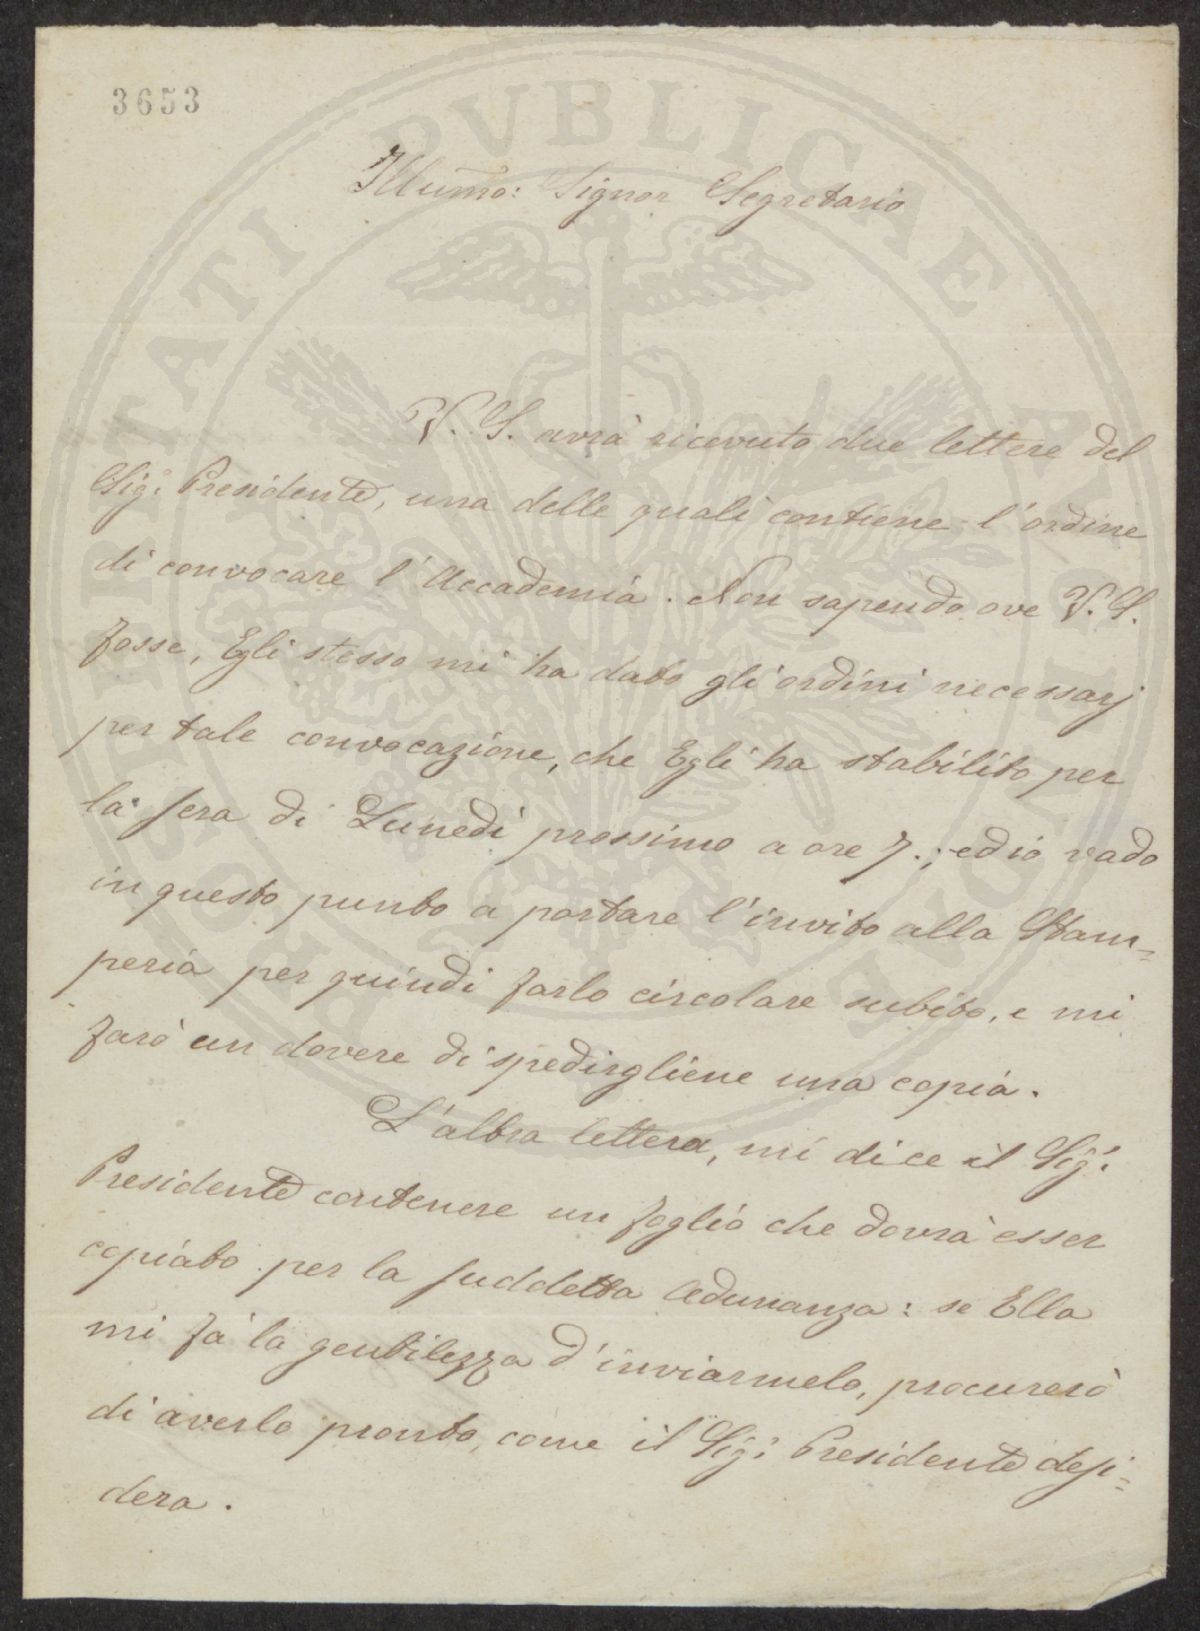 3653
Illumo: Signor Segretario
V. S. avrà ricevuto due lettere del
Sig: Presidente, una delle quali contiene l'ordine
di convocare l'Accademia. Non sapendo ove V. S.
fosse, Egli stesso mi ha dato gli ordini necessarj
per tale convocazione, che Egli ha stabilito per
la sera di Lunedì prossimo a ore 7.; ed io vado
in questo punto a portare l'invito alla Stam=
peria per quindi farlo circolare subito, e mi
farò un dovere di spedirgliene una copia.
L'altra lettera, mi dice il Sig:
Presidente contenere un foglio che dovrà esser
copiato per la suddetta Adunanza: se Ella
mi fà la gentilezza d'inviarmelo, procurerò
di averlo pronto, come il Sig: Presidente desi=
dera.
PROSPERITATI PVBLICAE AVGENDAE